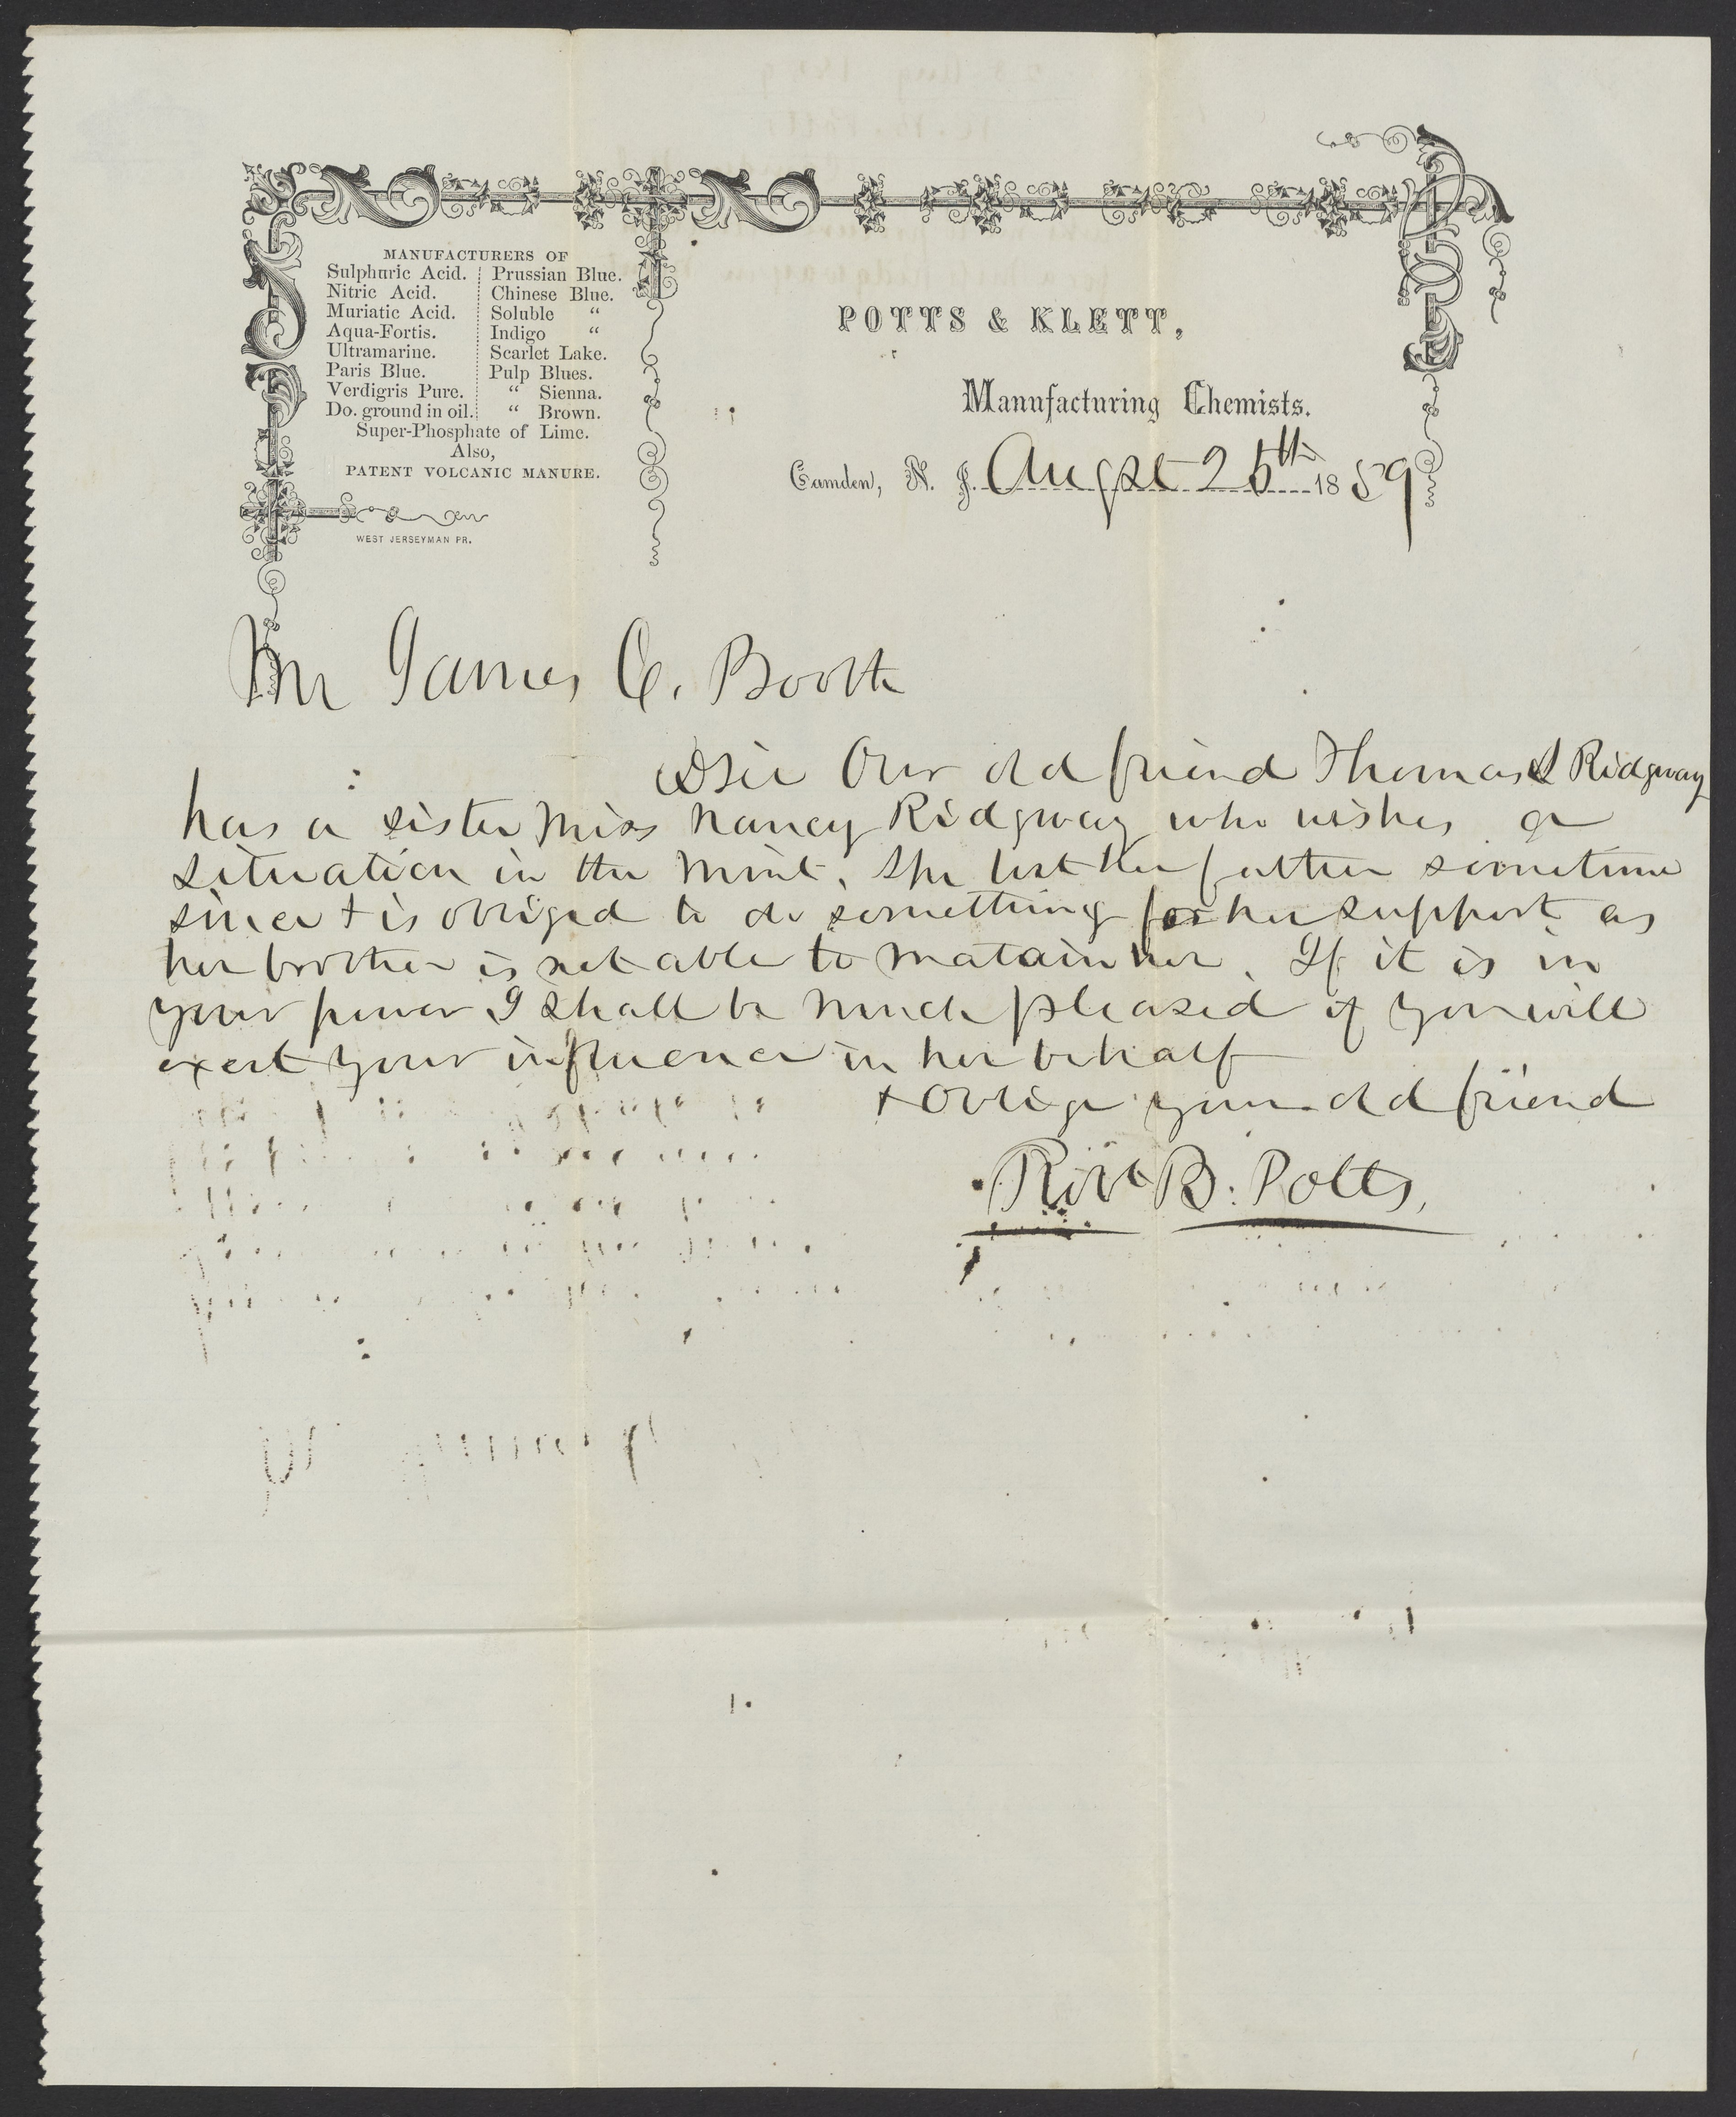 MANUFACTURERS OF
Sulphuric Acid. Prussian Blue.
Nitric Acid. Chinese Blue.
Muriatic Acid. Soluble "
Aqua-Fortis. Indigo "
Ultramarine. Scarlet Lake.
Paris Blue. Pulp Blues.
Verdigris Pure. " Sienna.
Do. ground in oil. " Brown.
Super-Phosphate of Lime.
Also,
PATENT VOLCANIC MANURE.
WEST JERSEYMAN PR.
POTTS & KLETT,
Manufacturing Chemists.
Camden, N. J. Augst 25th 1859
Mr James C. Booth
Dsir Our old friend Thomas S Ridgway
has a sister Miss Nancy Ridgway who wishes a
situation in the Mint. She lost her father sometime
since & is obliged to do something for her support as
her brother is not able to matain her. If it is in
your power I shall be much pleased if you will
exert your influence in her behalf
& oblige your old friend
Robt B. Potts.